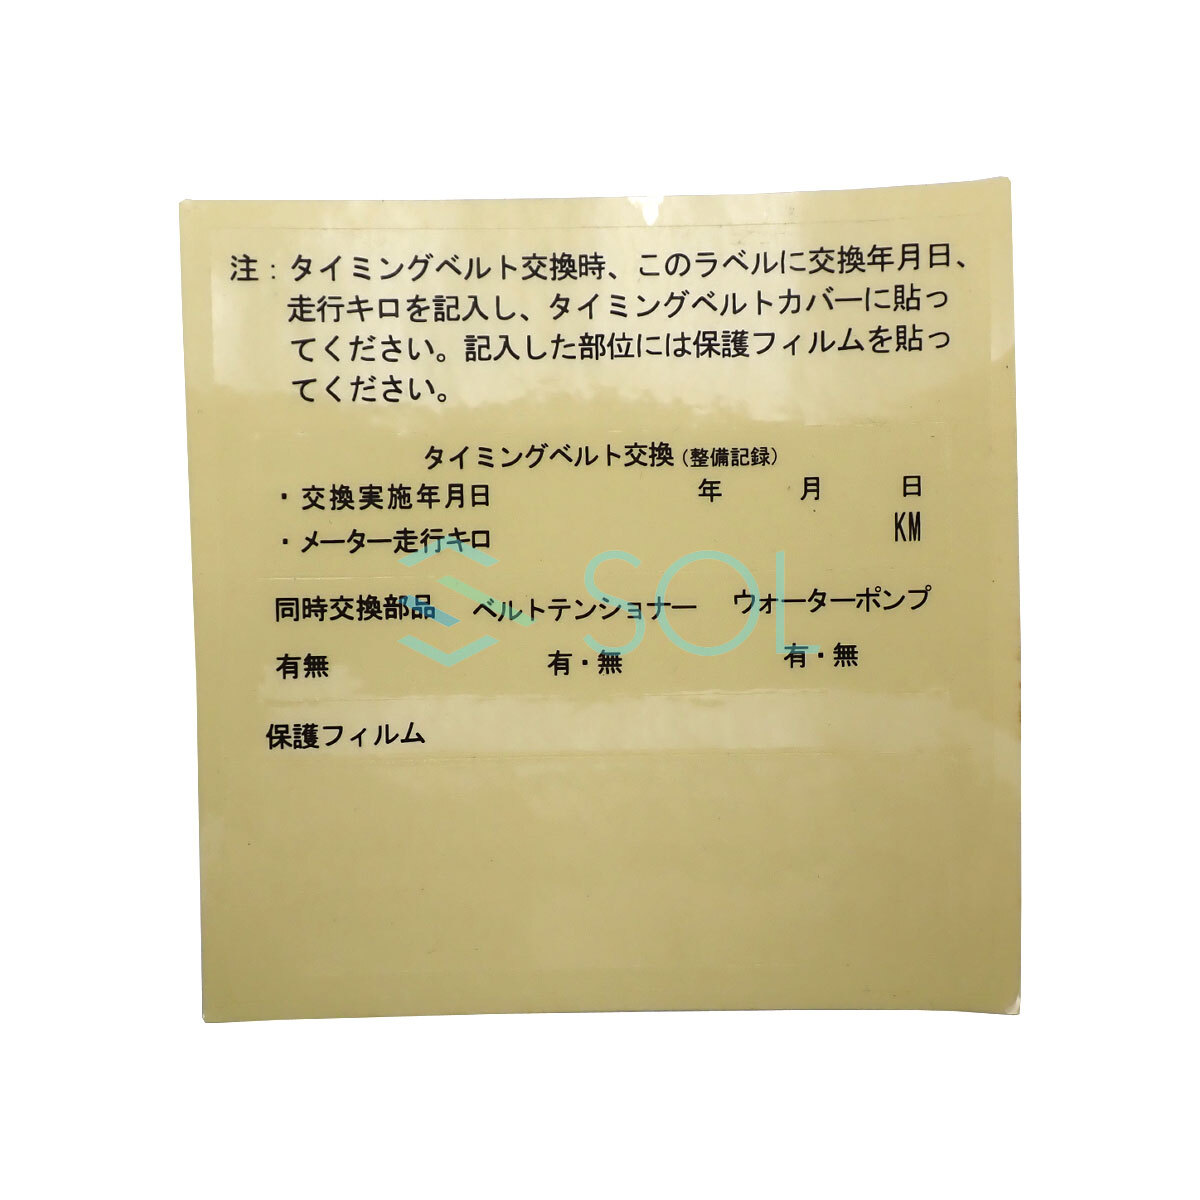 注：タイミングベルト交換時、このラベルに交換年月日、
走行キロを記入し、タイミングベルトカバーに貼っ
てください。記入した部位には保護フィルムを貼っ
てください。
タイミングベルト交換（整備記録）
・交換実施年月日 年 月 日
・メーター走行キロ KM
SOL
同時交換部品 ベルトテンショナー ウォーターポンプ
有無 有・無 有・無
保護フィルム